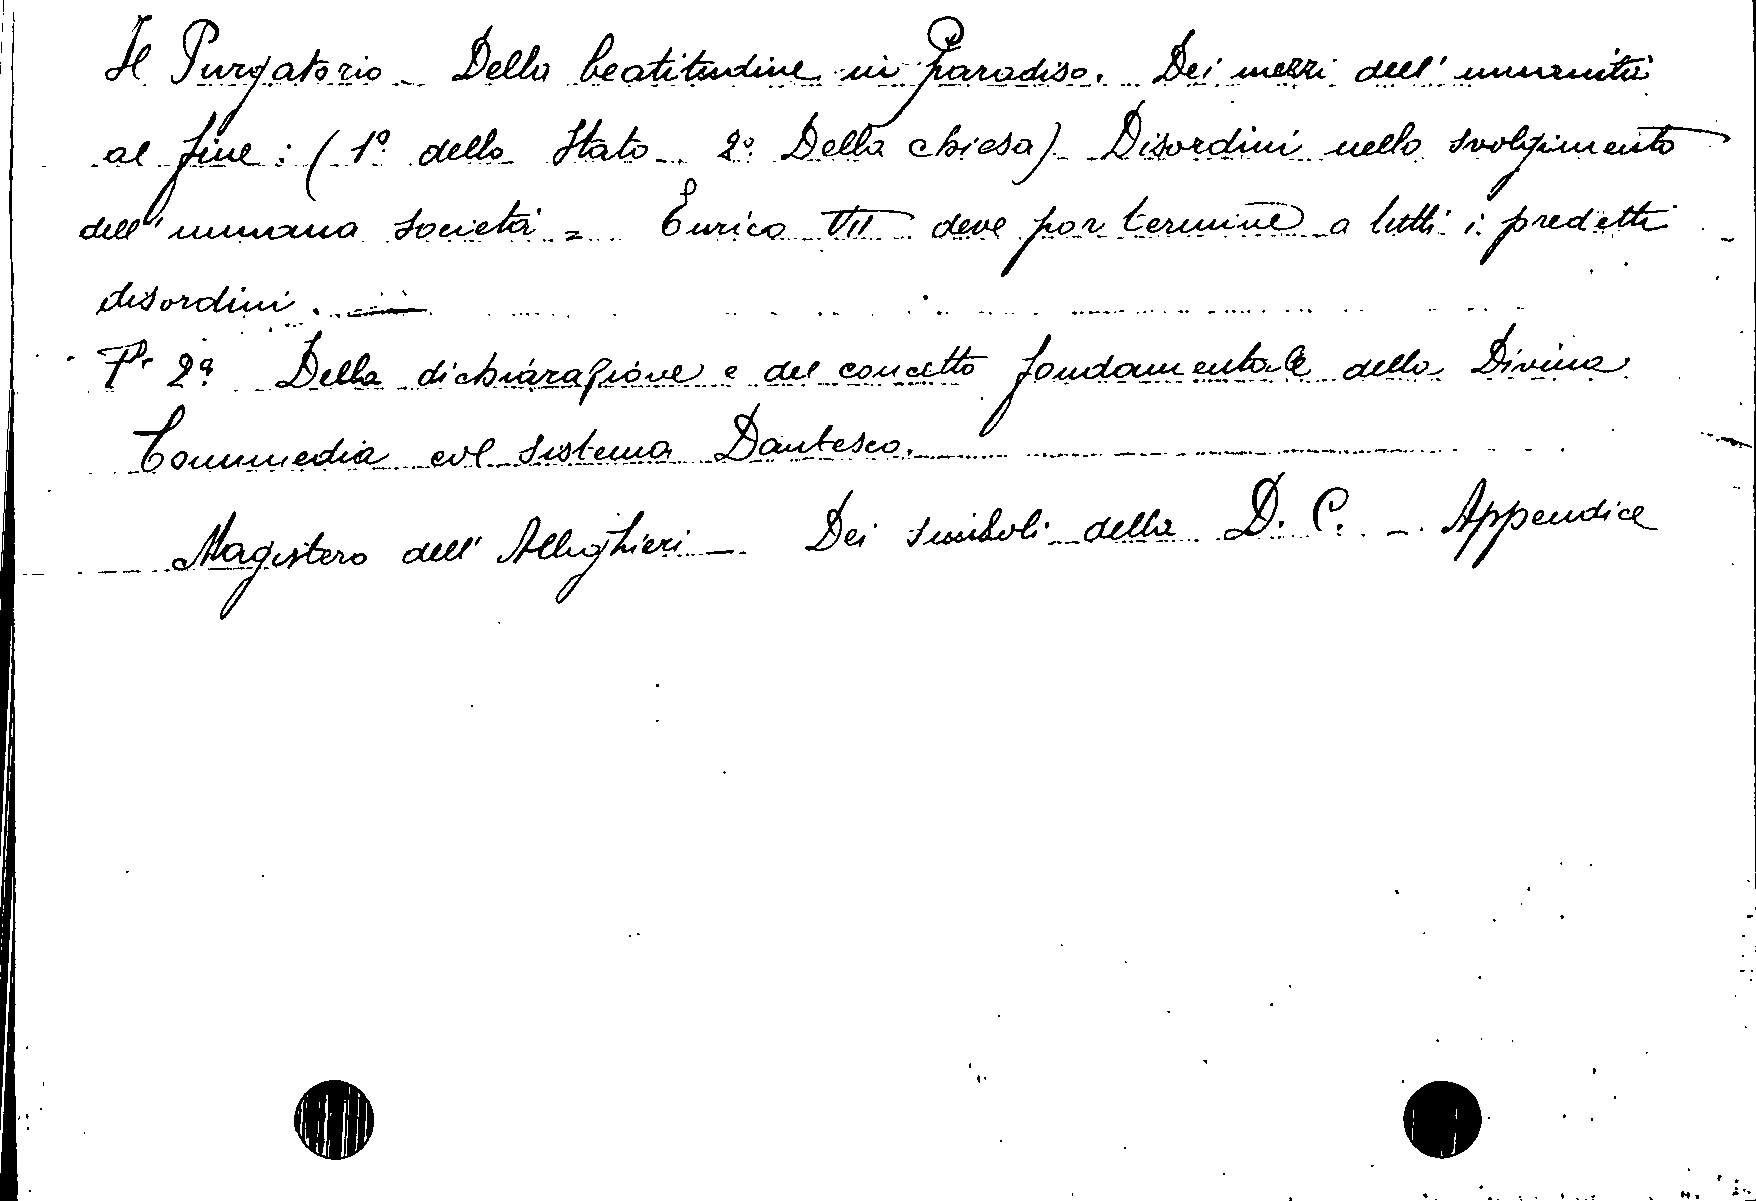 Il Purgatorio - Della beatitudine in Paradiso. Dei mezzi dell'umanità
al fine: (1º dello Stato - 2º Della chiesa) Disordini nello svolgimento
dell'umana società = Enrico VII deve por termine a tutti i predetti
disordini. —
Pr 2ª Della dichiarazione e del concetto fondamentale della Divina
Commedia col sistema Dantesco.
Magistero dell'Allighieri - Dei simboli della D. C. - Appendice